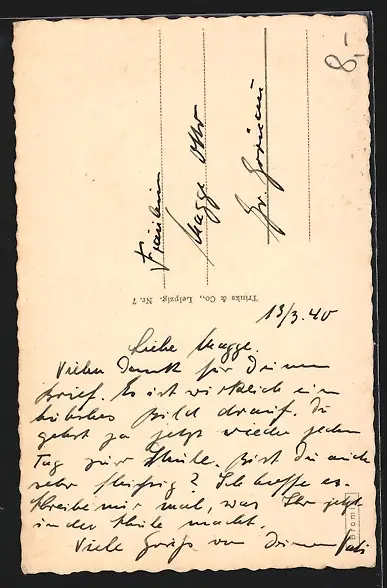 8,-
Fräulein
Magge Otto
Trinks & Co., Leipzig. Nr. 7
13/3.40
Liebe Magge.
Vielen Dank für Deinen
Brief. Es ist wirklich ein
hübsches Bild drauf. Du
gehst ja jetzt wieder jeden
Tag zur Schule. Bist Du auch
sehr fleißig? Ich hoffe es.
Schreibe mir mal, was Ihr jetzt
in der Schule macht.
Viele Grüße von Deinem Vati
Bromid